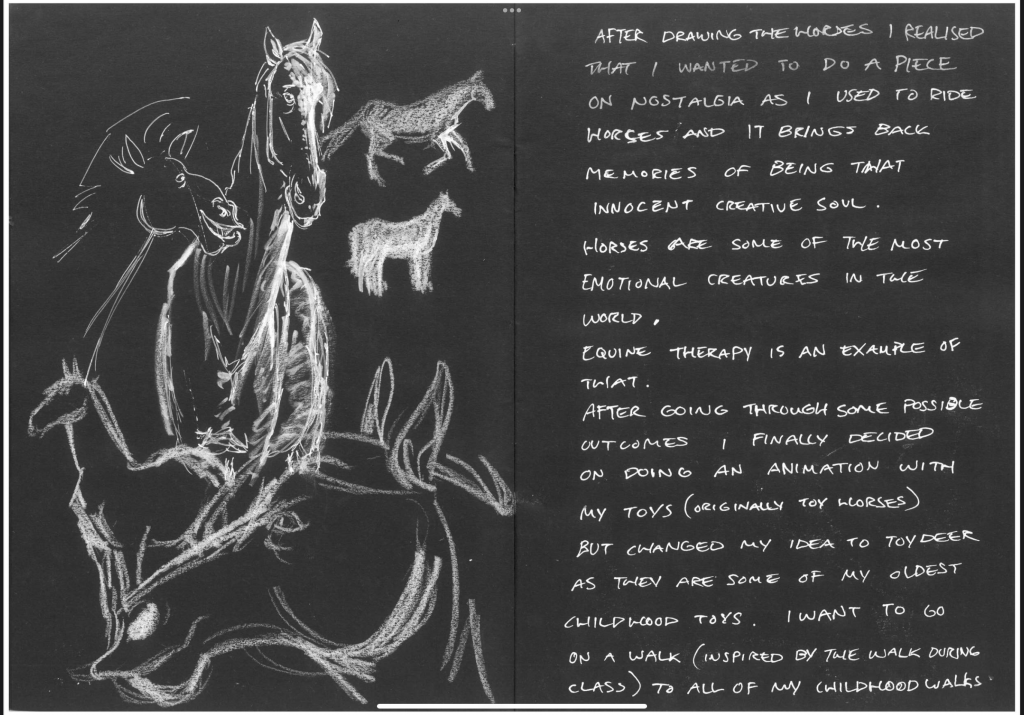 AFTER DRAWING THE HORSES I REALISED
THAT I WANTED TO DO A PIECE
ON NOSTALGIA AS I USED TO RIDE
HORSES AND IT BRINGS BACK
MEMORIES OF BEING THAT
INNOCENT CREATIVE SOUL.
HORSES ARE SOME OF THE MOST
EMOTIONAL CREATURES IN THE
WORLD.
EQUINE THERAPY IS AN EXAMPLE OF
THAT.
AFTER GOING THROUGH SOME POSSIBLE
OUTCOMES I FINALLY DECIDED
ON DOING AN ANIMATION WITH
MY TOYS (ORIGINALLY TOY HORSES)
BUT CHANGED MY IDEA TO TOY DEER
AS THEY ARE SOME OF MY OLDEST
CHILDHOOD TOYS. I WANT TO GO
ON A WALK (INSPIRED BY THE WALK DURING
CLASS) TO ALL OF MY CHILDHOOD WALKS